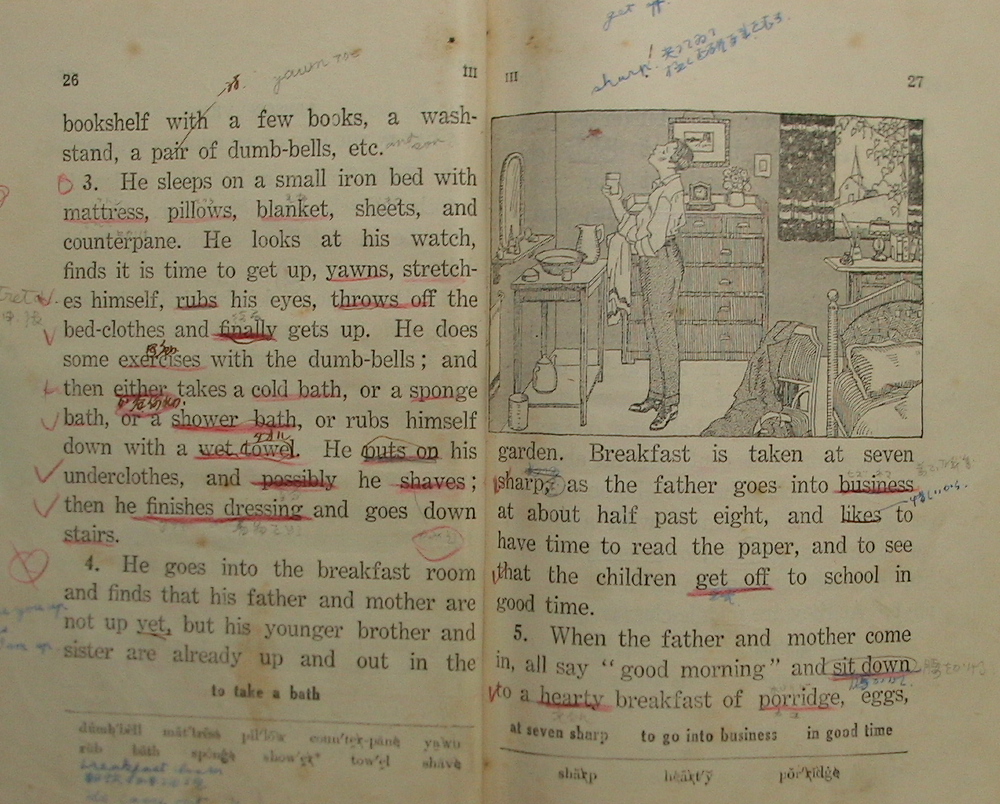 26
III
yawn
bookshelf with a few books, a wash-
stand, a pair of dumb-bells, etc.
3. He sleeps on a small iron bed with
mattress, pillows, blanket, sheets, and
counterpane. He looks at his watch,
finds it is time to get up, yawns, stretch-
es himself, rubs his eyes, throws off the
bed-clothes and finally gets up. He does
some exercises with the dumb-bells; and
then either takes a cold bath, or a sponge
bath, or a shower bath, or rubs himself
down with a wet towel. He puts on his
underclothes, and possibly he shaves;
then he finishes dressing and goes down
stairs.
4. He goes into the breakfast room
and finds that his father and mother are
not up yet, but his younger brother and
sister are already up and out in the
to take a bath
dŭmb'bĕll măt'trĕss pĭl'lōw coun'tẽr-pāne yawn
rŭb băth spŏnġe show'ẽr tow'ĕl shāve
breakfast
III
27
get
sharp!
garden. Breakfast is taken at seven
sharp, as the father goes into business
at about half past eight, and likes to
have time to read the paper, and to see
that the children get off to school in
good time.
5. When the father and mother come
in, all say "good morning" and sit down
to a hearty breakfast of porridge, eggs,
at seven sharp to go into business in good time
shärp heärt'y̆ pŏr'rĭdġe